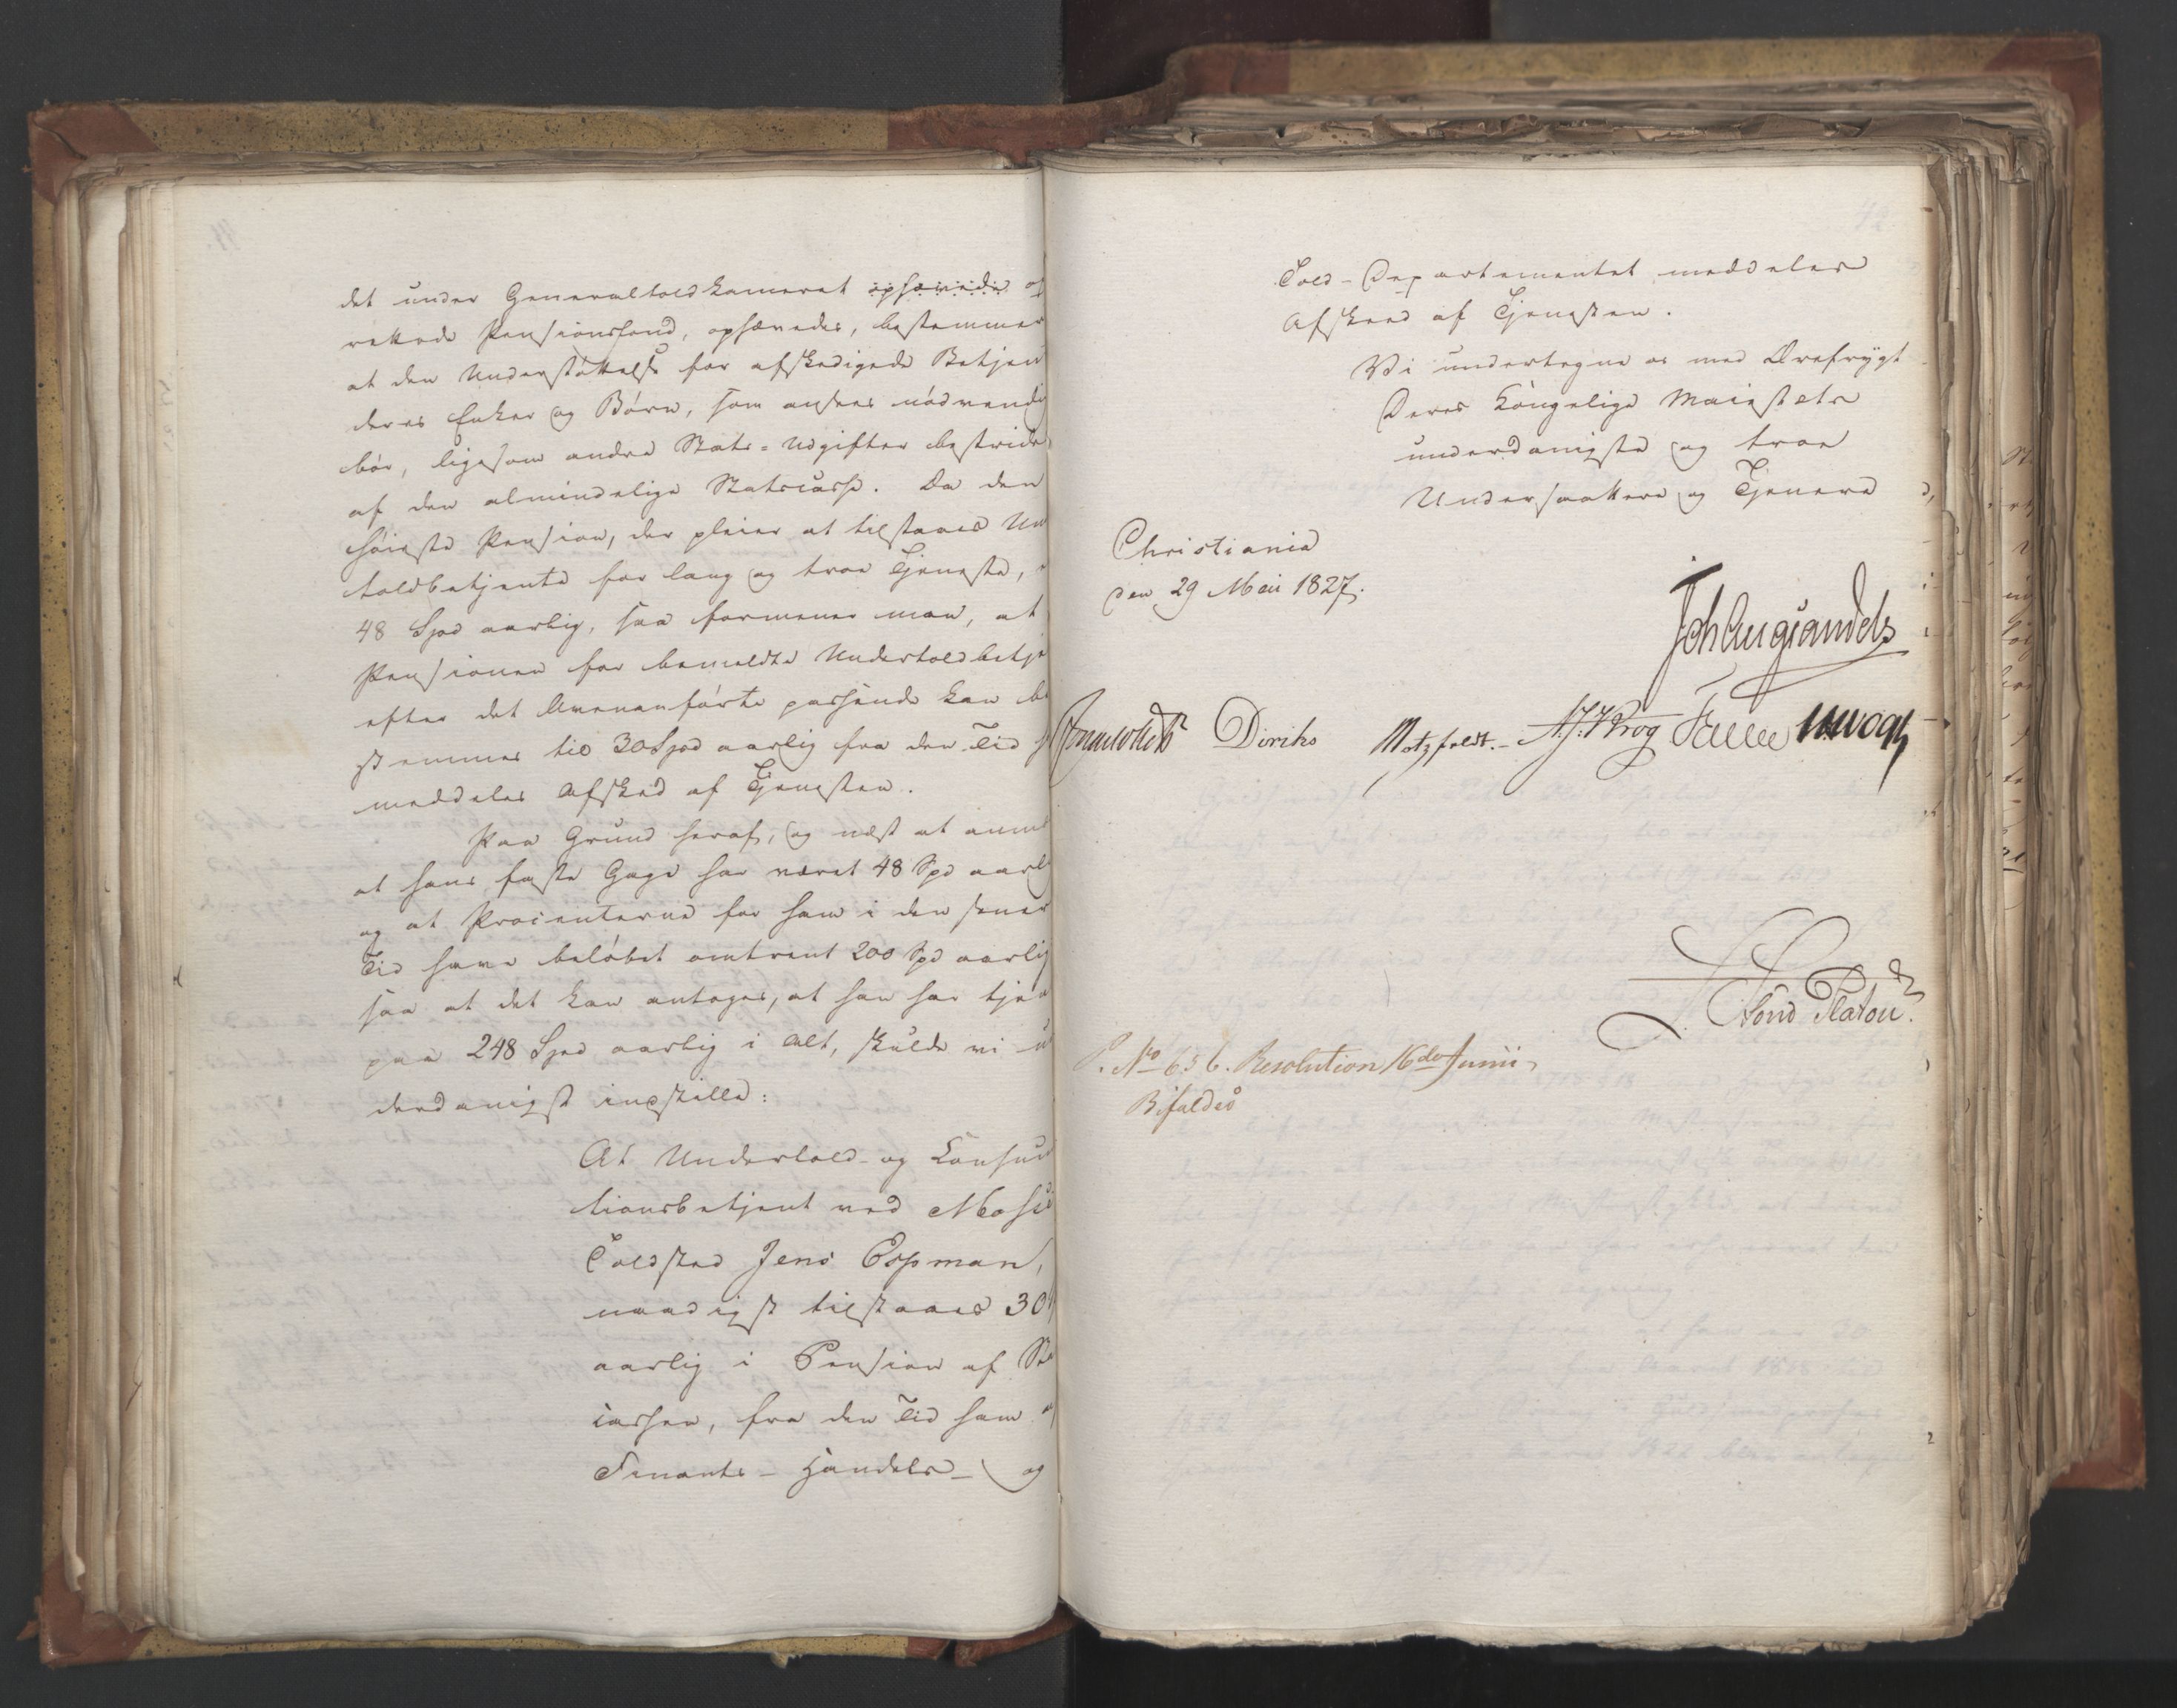 det under Generaltoldkameret ophævede op
rettede Pensionsfond, ophævedes, bestemmer
at den Understöttelse for afskedigede Betjen
deres Enker og Börn, som ansees nödvendig
bör, ligesom andre Stats-Udgifter bestrides
af den almindelige Statscasse. Da den
höieste Pension, der pleier at tilstaaes Un
toldbetjente for lang og troe Tjeneste,
48 Spd aarlig, saa formener man, at
Pensionen for bemeldte Undertoldbetje
efter det Ovenanförte passende kan be
stemmes til 30 Spd aarlig fra den Tid
meddeles Afsked af Tjenesten.
Paa Grund heraf, og næst at anmæ
at hans faste Gage har været 48 Spd aarl
og at Procenterne for ham i den sener
Tid have belöbet omtrent 200 Spd aarlig
saa at det kan antages, at han har tjen
paa 248 Spd aarlig i Alt, skulde vi un
derdanigst indstille:
At Undertold- og Consum
tionsbetjent ved Moss
Toldsted Jens Espman,
naadigst tilstaaes 30
aarlig i Pension af Sta
cassen, fra den Tid ham af
Finants- Handels- og
Told-Departementet meddeles
Afskeed af Tjenesten.
Vi undertegne os med Ærefrygt
Deres Kongelige Maiestets
underdanigste og troe
Undersaattere og Tjenere
Christiania
den 29 Mai 1827.
Joh Aug Sandels
Diriks Motzfeldt. Krog Fasting J H Vogt
Platou.
P. No 656. Resolution 16de Junii,
Bifaldes